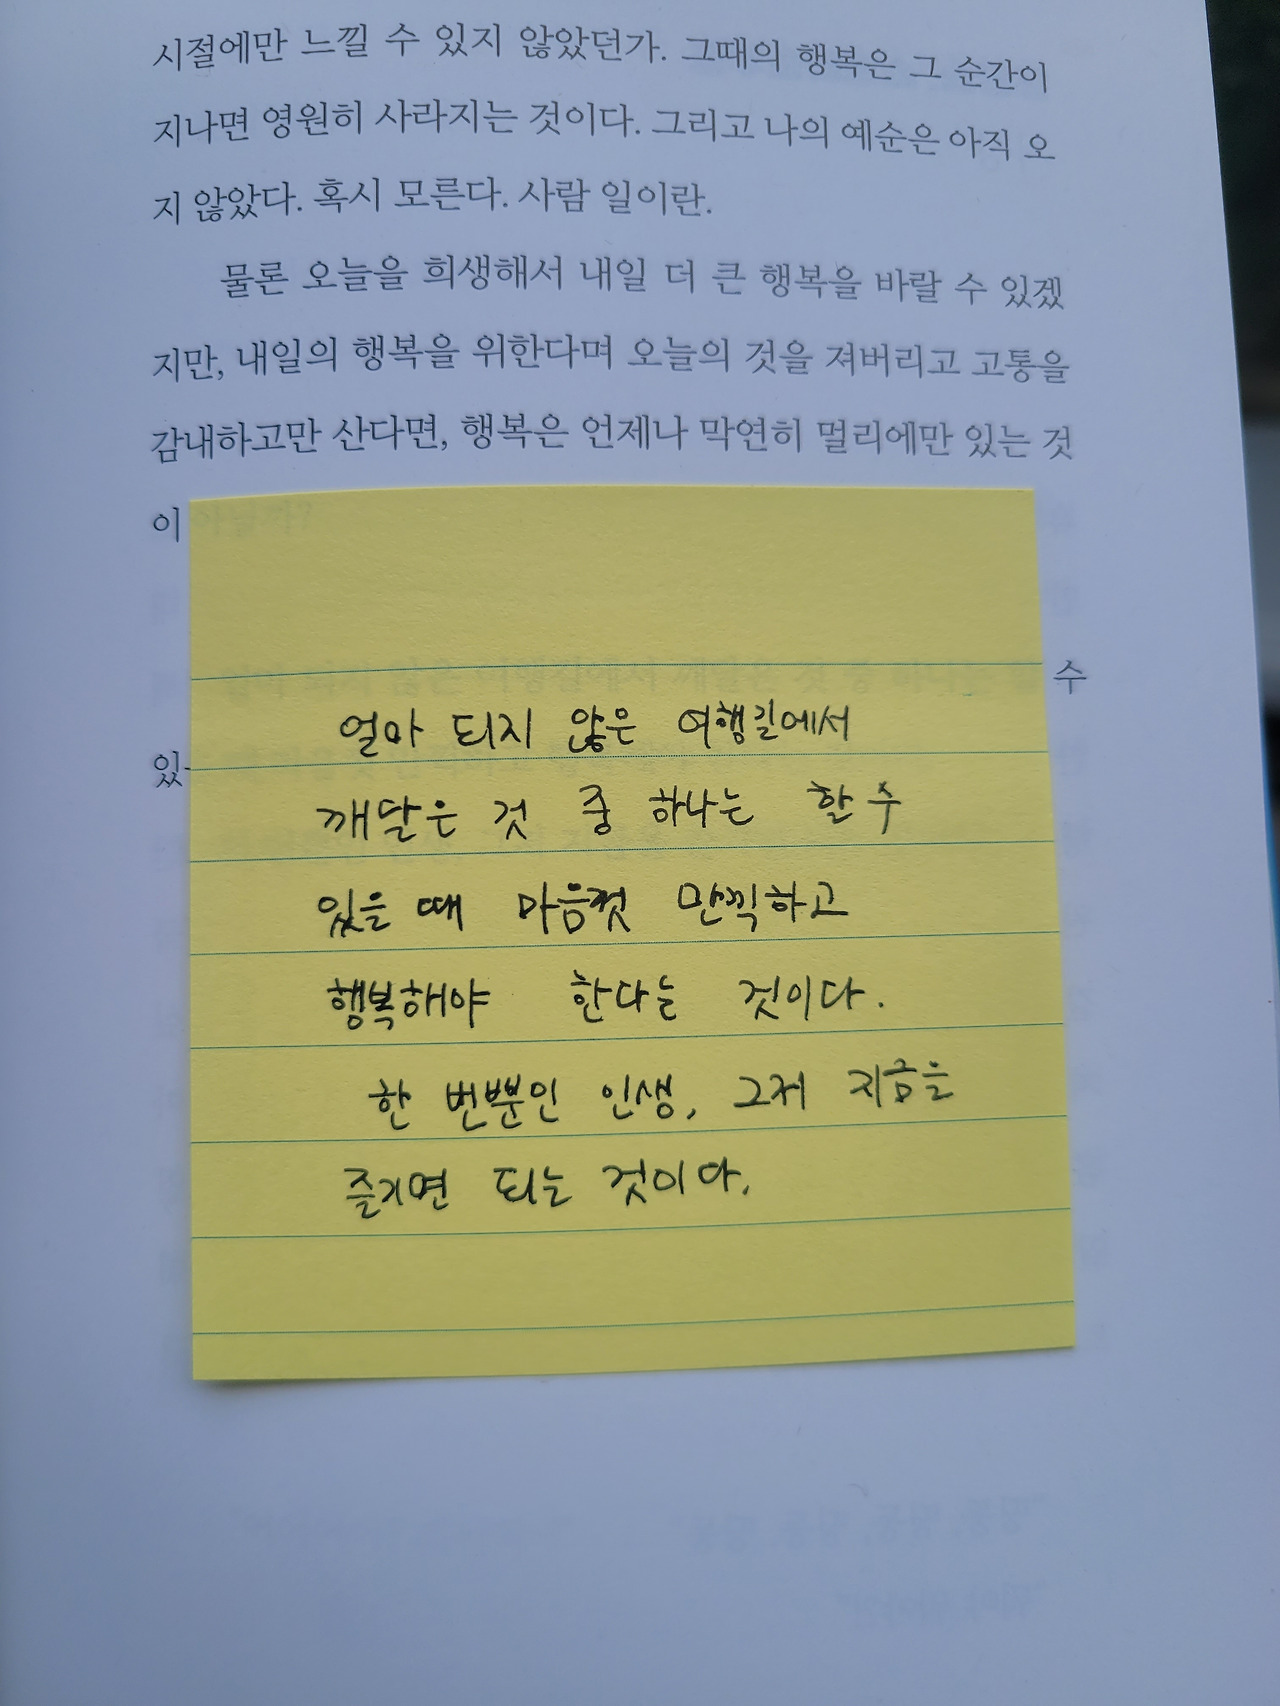 시절에만 느낄 수 있지 않았던가. 그때의 행복은 그 순간이
지나면 영원히 사라지는 것이다. 그리고 나의 예순은 아직 오
지 않았다. 혹시 모른다. 사람 일이란.
물론 오늘을 희생해서 내일 더 큰 행복을 바랄 수 있겠
지만, 내일의 행복을 위한다며 오늘의 것을 져버리고 고통을
감내하고만 산다면, 행복은 언제나 막연히 멀리에만 있는 것
이 아닐까?
수
있
얼마 되지 않은 여행길에서
깨달은 것 중 하나는 할 수
있을 때 마음껏 만끽하고
행복해야 한다는 것이다.
한 번뿐인 인생, 그저 지금을
즐기면 되는 것이다.